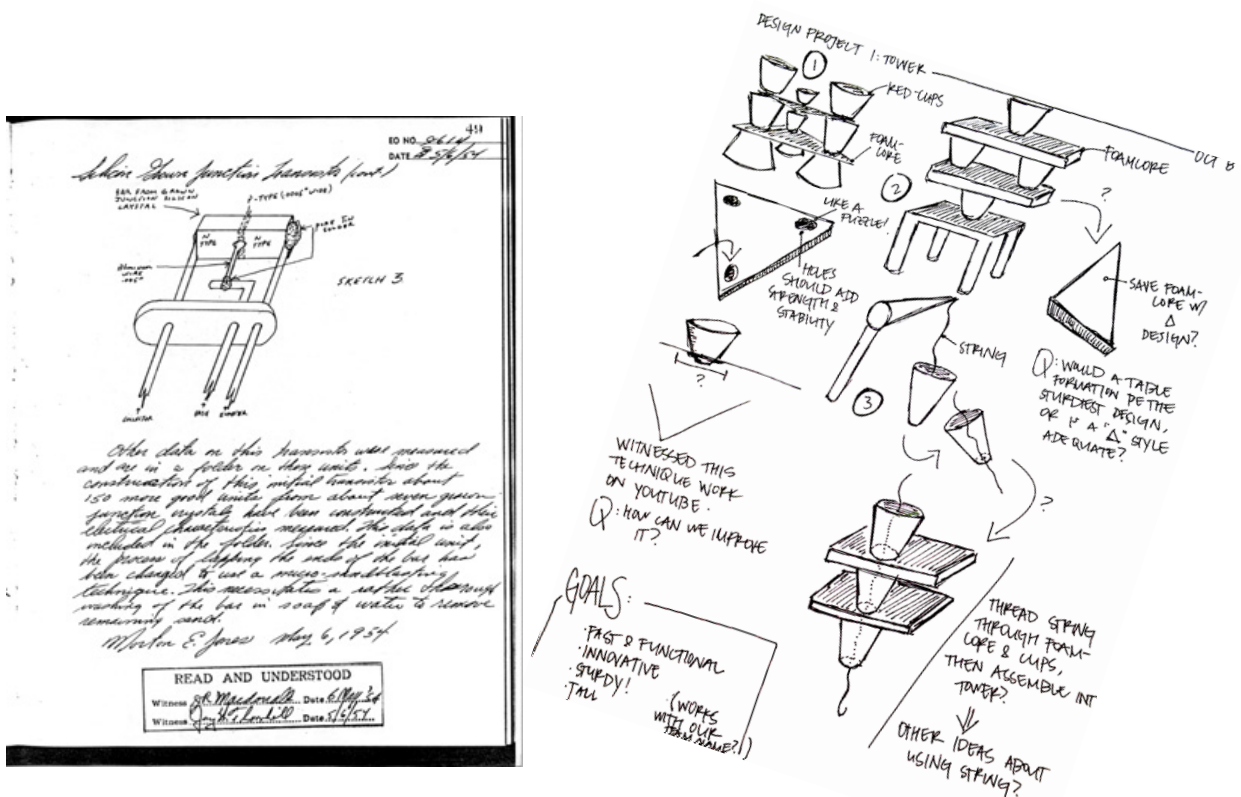 49
EO NO. 8614
DATE 5/6/54
Silicon Grown Junction Transistor (con't)
BAR FROM GROWN
JUNCTION SILICON
CRYSTAL
P-TYPE (.0005" WIDE)
N
TYPE
N
TYPE
PURE TIN
SOLDER
ALUMINUM
WIRE
.005"
SKETCH 3
COLLECTOR
BASE
EMITTER
Other data on this transistor were measured
and are in a folder on these units. Since the
construction of this initial transistor about
150 more good units from about seven grown
junction crystals have been constructed and their
electrical characteristics measured. This data is also
included in the folder. Since the initial unit,
the process of lapping the ends of the bar has
been changed to use a micro-sandblasting
technique. This necessitates a rather thorough
washing of the bar in soap & water to remove
remaining sand.
Morton E. Jones May 6, 1954
READ AND UNDERSTOOD
Witness Macdonald Date 6 May '54
Witness Date 5/6/54
DESIGN PROJECT 1: TOWER
OCT 8
1
RED CUPS
FOAM-
CORE
2
FOAMCORE
?
LIKE A
PUZZLE!
HOLES
SHOULD ADD
STRENGTH &
STABILITY
SAVE FOAM-
CORE W/
Δ
DESIGN?
Q: WOULD A TABLE
FORMATION BE THE
STURDIEST DESIGN,
OR IS A "Δ" STYLE
ADEQUATE?
?
STRING
3
?
WITNESSED THIS
TECHNIQUE WORK
ON YOUTUBE.
Q: HOW CAN WE IMPROVE
IT?
GOALS:
·FAST & FUNCTIONAL
·INNOVATIVE
·STURDY!
·TALL
(WORKS
WITH OUR
TEAM NAME?!)
THREAD STRING
THROUGH FOAM-
CORE & CUPS,
THEN ASSEMBLE INT
TOWER?
OTHER IDEAS ABOUT
USING STRING?